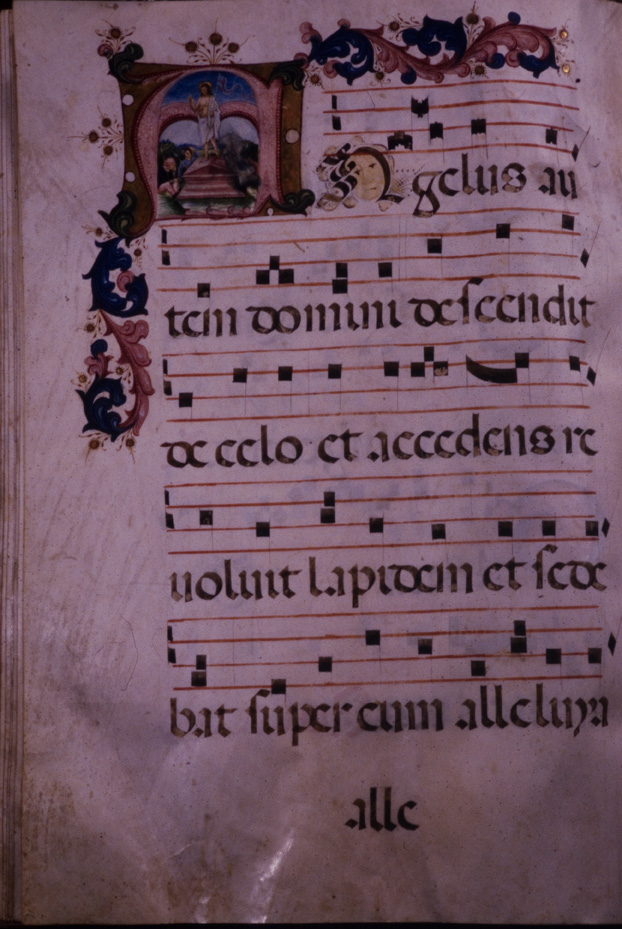 ANgelus au
tem domini descendit
de celo et accedens re
uoluit lapidem et sede
bat super eum alleluya
alle